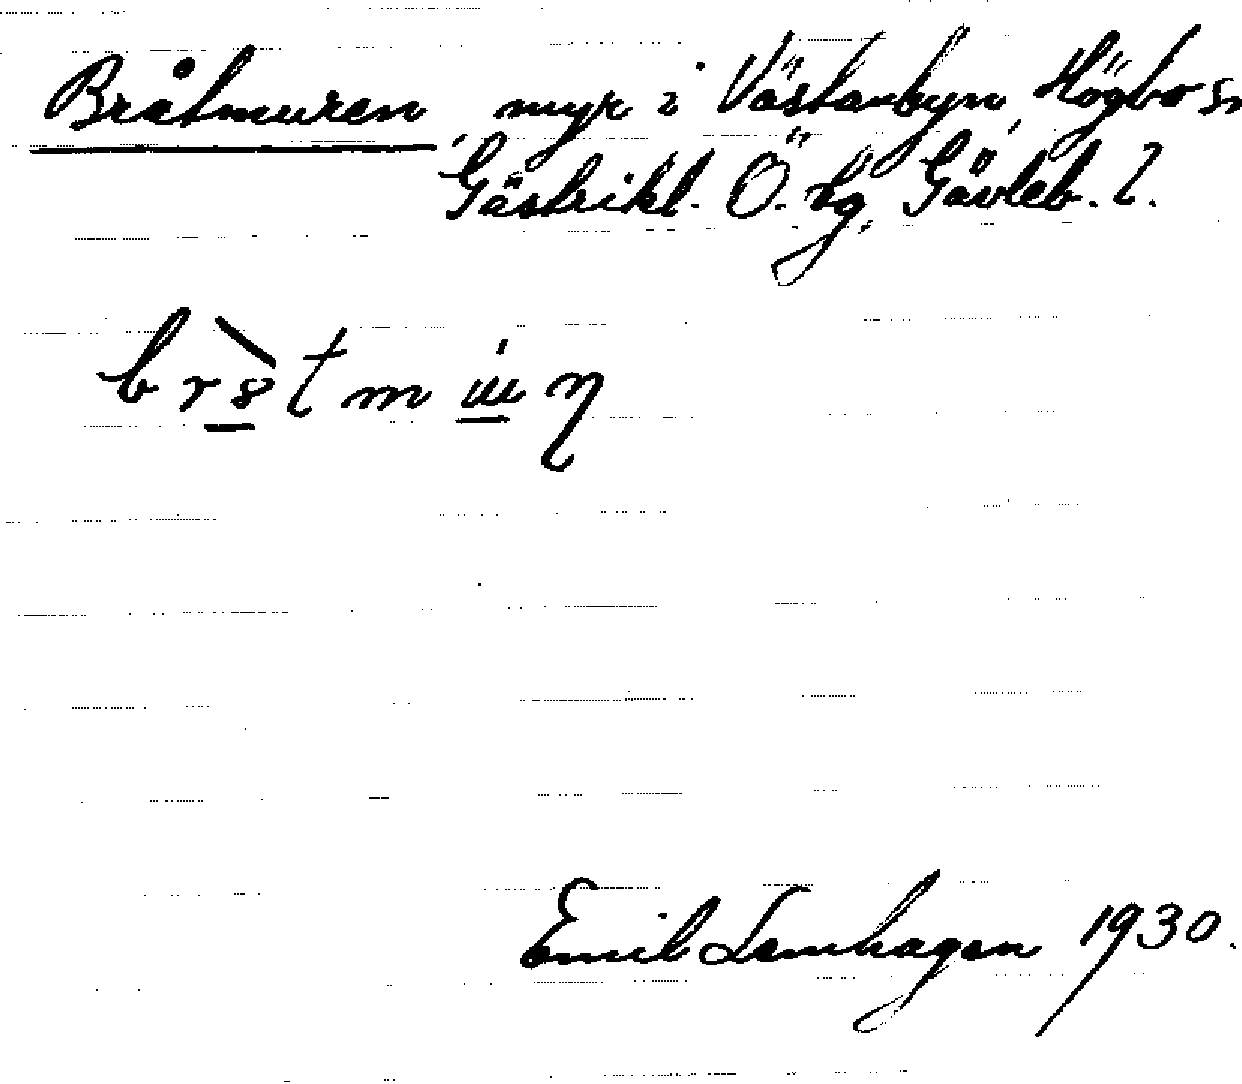 Bråtmuren, myr i Västanbyn, Högbo sn
Gästrikl. Ö. tg, Gävleb. l.
Emil Lemhagen 1930.